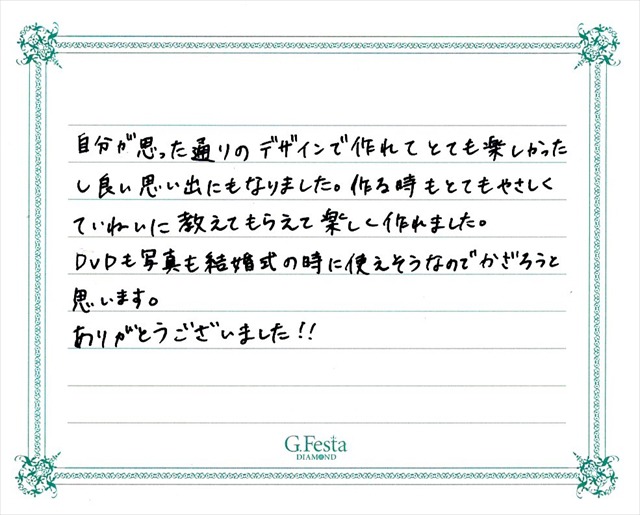 自分が思った通りのデザインで作れてとても楽しかった
し良い思い出にもなりました。作る時もとてもやさしく
ていねいに教えてもらえて楽しく作れました。
DVDも写真も結婚式の時に使えそうなのでかざろうと
思います。
ありがとうございました!!
G.Festa
DIAMOND